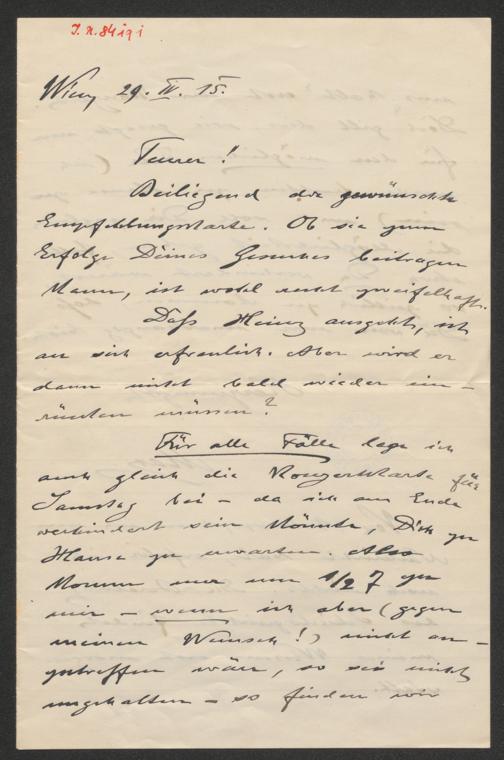 Wien, 29. IV. 15.
Teurer!
Beiliegend die gewünschte
Empfehlungskarte. Ob sie zum
Erfolge Deines Gesuches beitragen
kann, ist wohl recht zweifelhaft.
Daß Heinz ausgeht, ist
an sich erfreulich. Aber wird er
dann nicht bald wieder ein-
rücken müssen?
Für alle Fälle lege ich
auch gleich die Konzertkarte für
Samstag bei – da ich am Ende
verhindert sein könnte, Dich zu
Hause zu erwarten. Also
komm nur um 1/2 7 zu
mir – wenn ich aber (gegen
meinen Wunsch!) nicht an-
getroffen wäre, so sei nicht
ungehalten – so finden wir